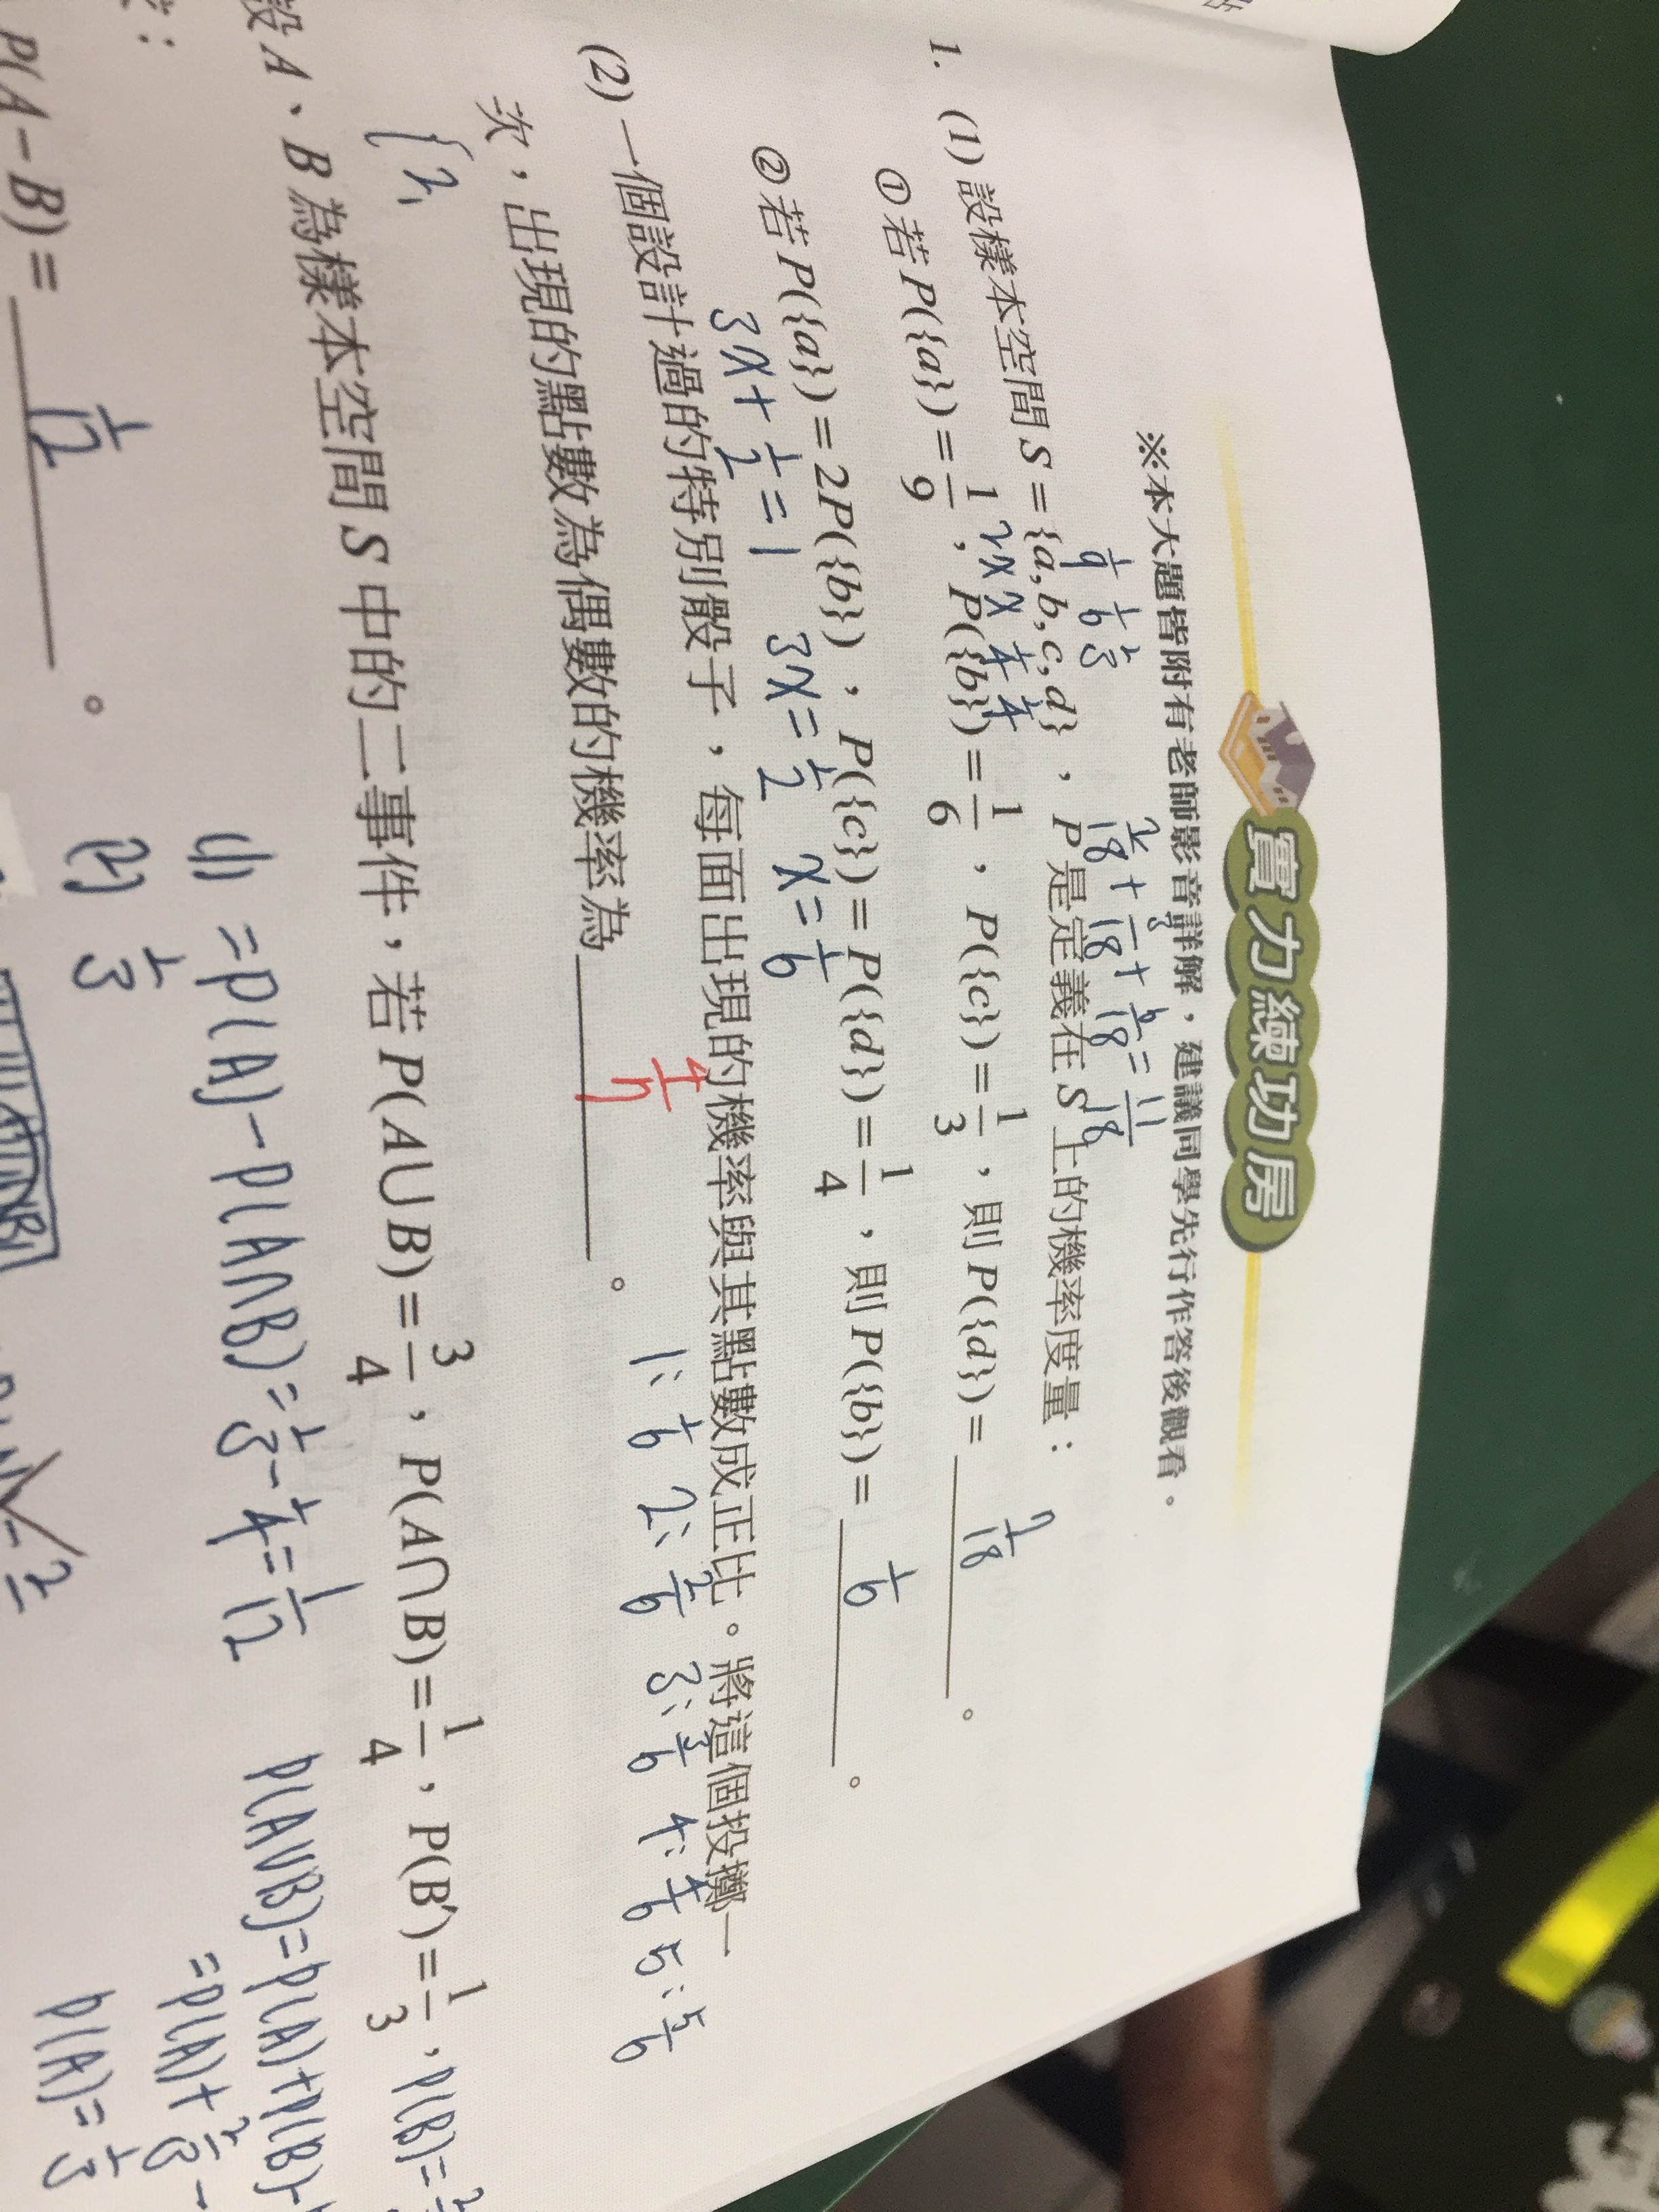 實力練功房
※本大題皆附有老師影音詳解，建議同學先行作答後觀看。
1/9 1/6 1/3
2/18 + 3/18 + 6/18 = 11/18
1. (1) 設樣本空間 S = {a, b, c, d}，P 是定義在 S 上的機率度量：
2x x 1/4 1/4
① 若 P({a}) = 1/9，P({b}) = 1/6，P({c}) = 1/3，則 P({d}) = 7/18。
② 若 P({a}) = 2P({b})，P({c}) = P({d}) = 1/4，則 P({b}) = 1/6。
3x + 1/2 = 1 3x = 1/2 x = 1/6
(2) 一個設計過的特別骰子，每面出現的機率與其點數成正比。將這個投擲一
1: 1/6 2: 2/6 3: 3/6 4: 4/6 5: 5/6
次，出現的點數為偶數的機率為 4/7。
{2,
設 A、B 為樣本空間 S 中的二事件，若 P(A∪B) = 3/4，P(A∩B) = 1/4，P(B') = 1/3，P(B) =
(1) = P(A) - P(A∩B) = 1/3 - 1/4 = 1/12
P(A∪B) = P(A) + P(B) -
= P(A) + 2/3 -
P(A) = 1/3
(2) 1/3
P(A - B) = 1/12。